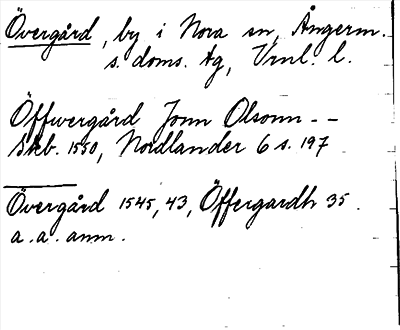 Övergård, by i Nora sn, Ångerm.
s. doms. tg, Vrnl. l.
Öffwergård Jonn Olsonn - -
Skb. 1550, Nordlander 6 s. 197
Övergård 1545, 43, Öffergardh 35.
a. a. anm.